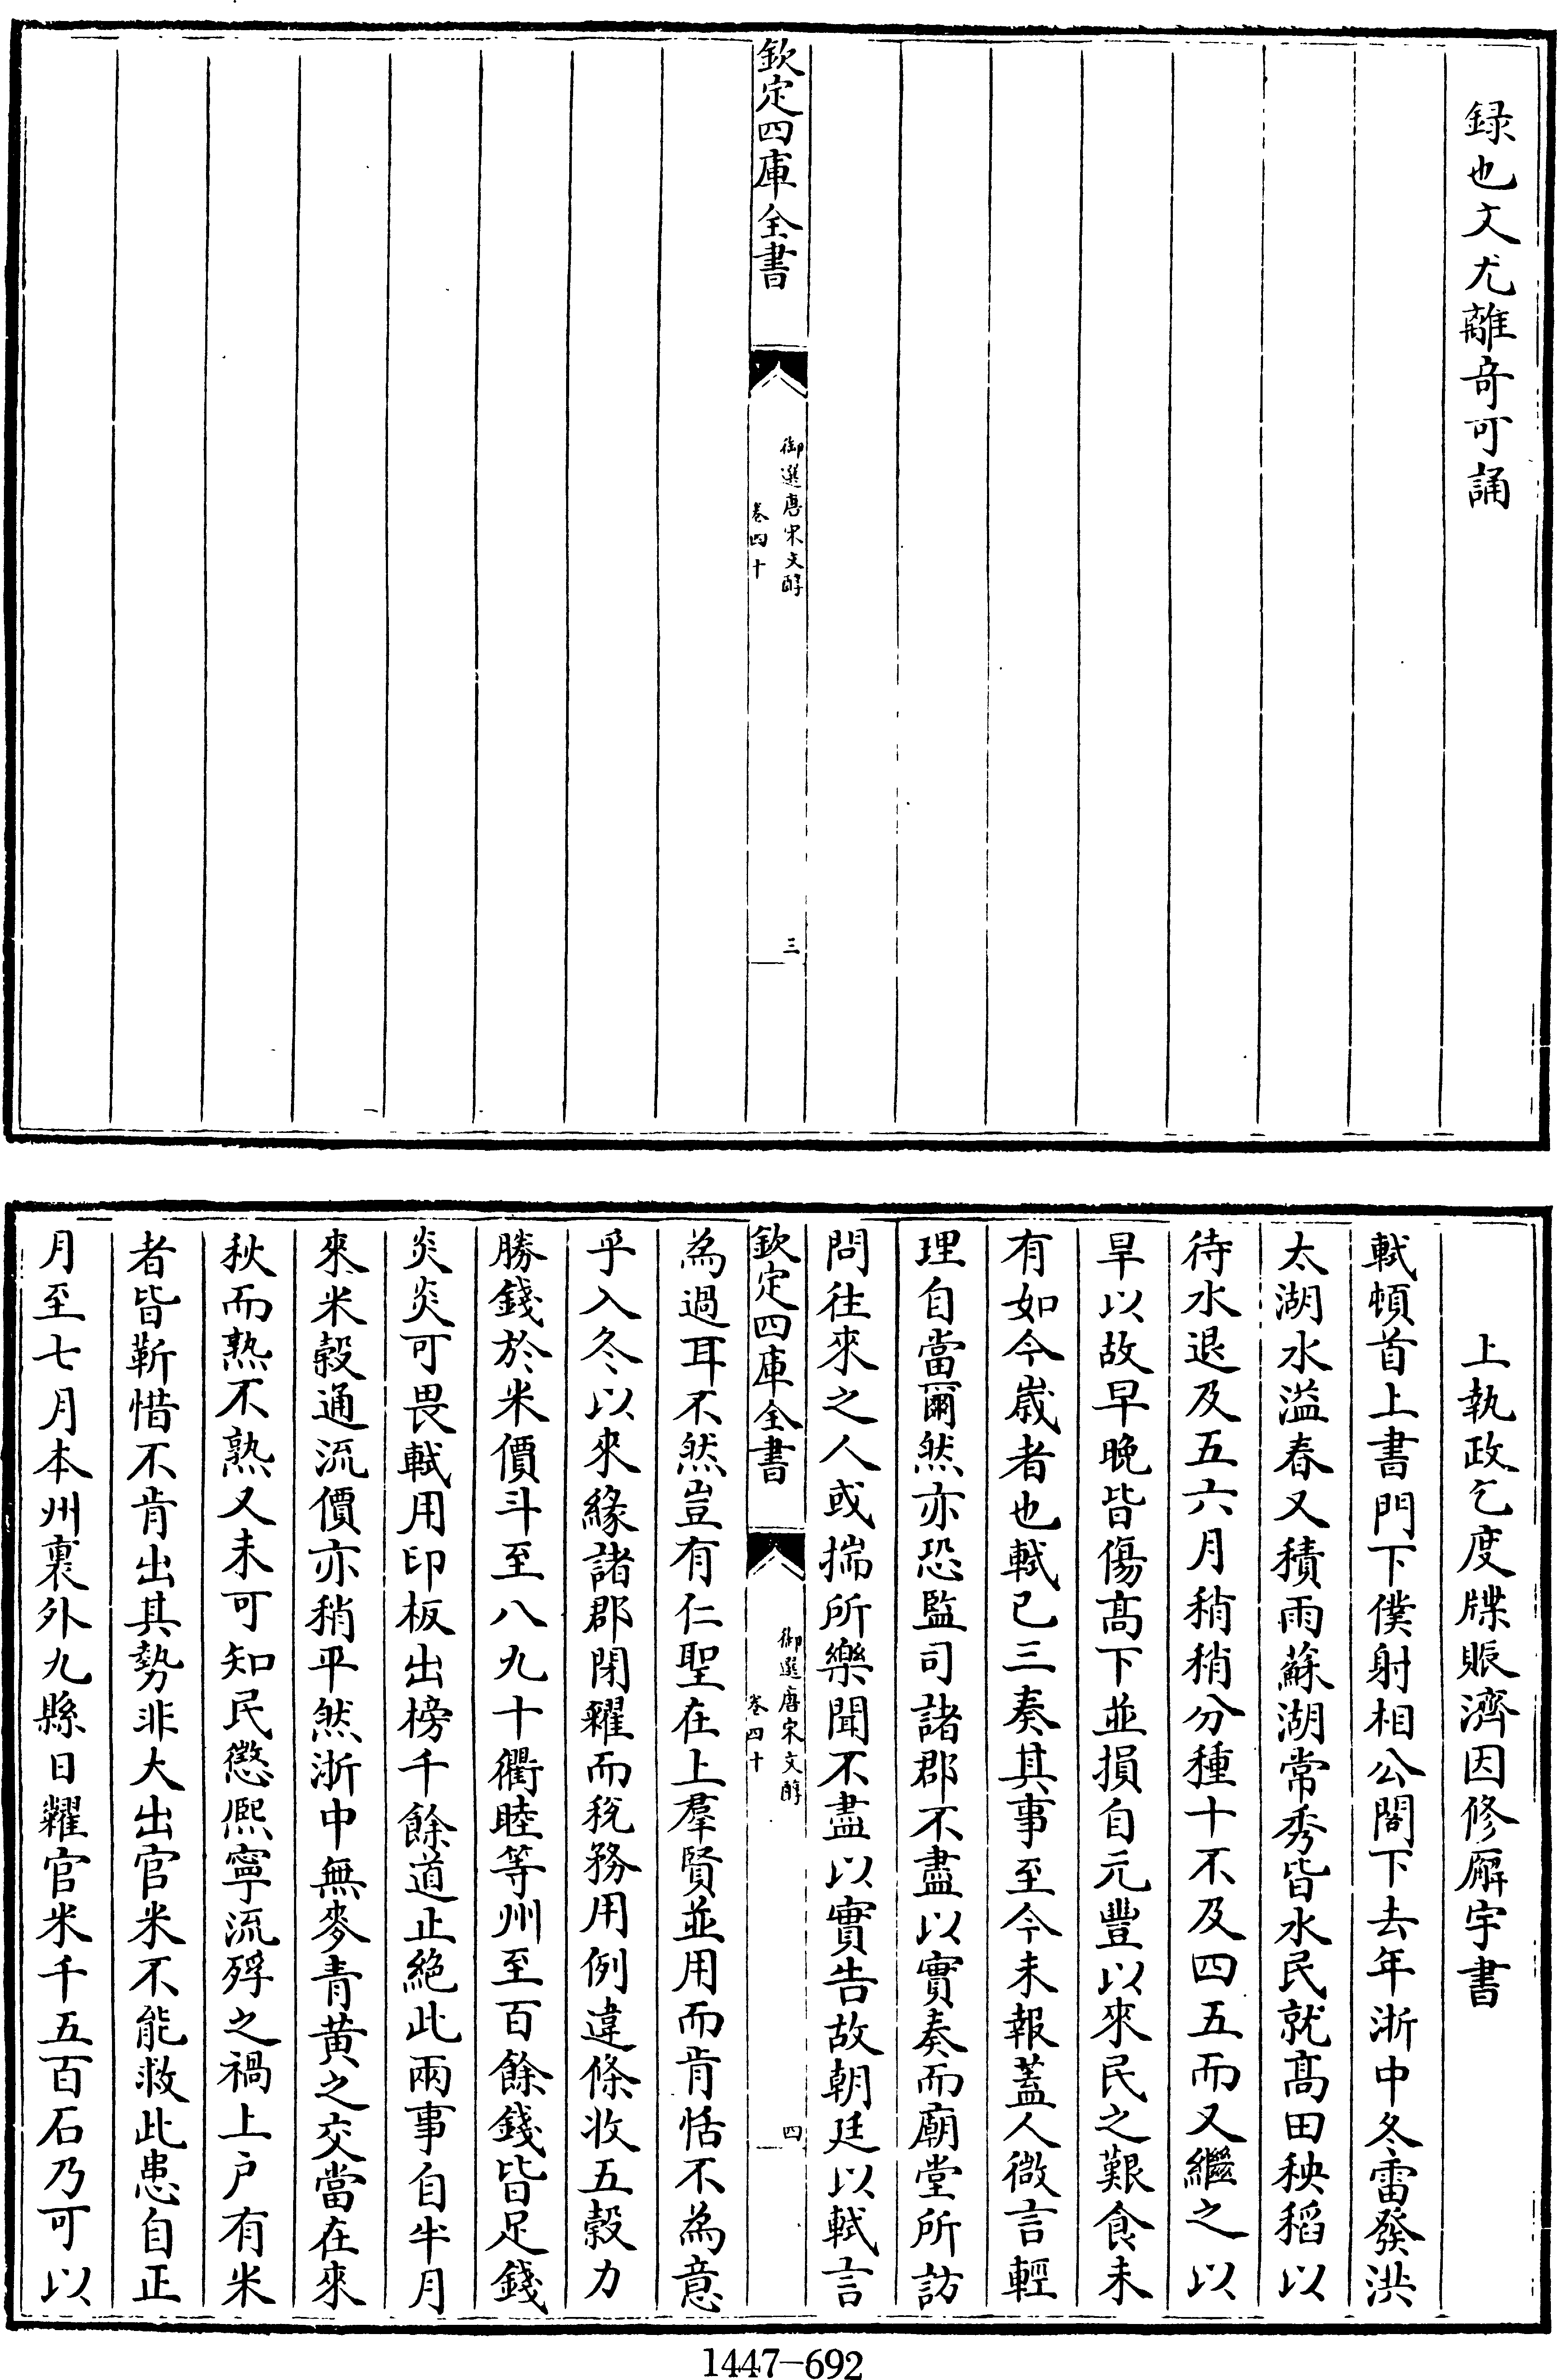 録也文尤離奇可誦
欽定四庫全書
御選唐宋文醇
卷四十
三
上執政乞度牒賑濟因修廨宇書
軾頓首上書門下僕射相公閤下去年浙中冬雷發洪
太湖水溢春又積雨蘇湖常秀皆水民就髙田秧稻以
待水退及五六月稍稍分種十不及四五而又繼之以
旱以故早晚皆傷髙下並損自元豐以來民之艱食未
有如今嵗者也軾已三奏其事至今未報蓋人微言輕
理自當爾然亦恐監司諸郡不盡以實奏而廟堂所訪
問往來之人或揣所樂聞不盡以實告故朝廷以軾言
欽定四庫全書
御選唐宋文醇
卷四十
四
為過耳不然豈有仁聖在上羣賢並用而肯恬不為意
乎入冬以來緣諸郡閉糴而稅務用例違條收五穀力
勝錢於米價斗至八九十衢睦等州至百餘錢皆足錢
炎炎可畏軾用印板出榜千餘道止絶此兩事自半月
來米穀通流價亦稍平然浙中無麥青黄之交當在來
秋而熟不熟又未可知民懲熈寧流殍之禍上戸有米
者皆靳惜不肯出其勢非大出官米不能救此患自正
月至七月本州裏外九縣日糶官米千五百石乃可以
1447-692